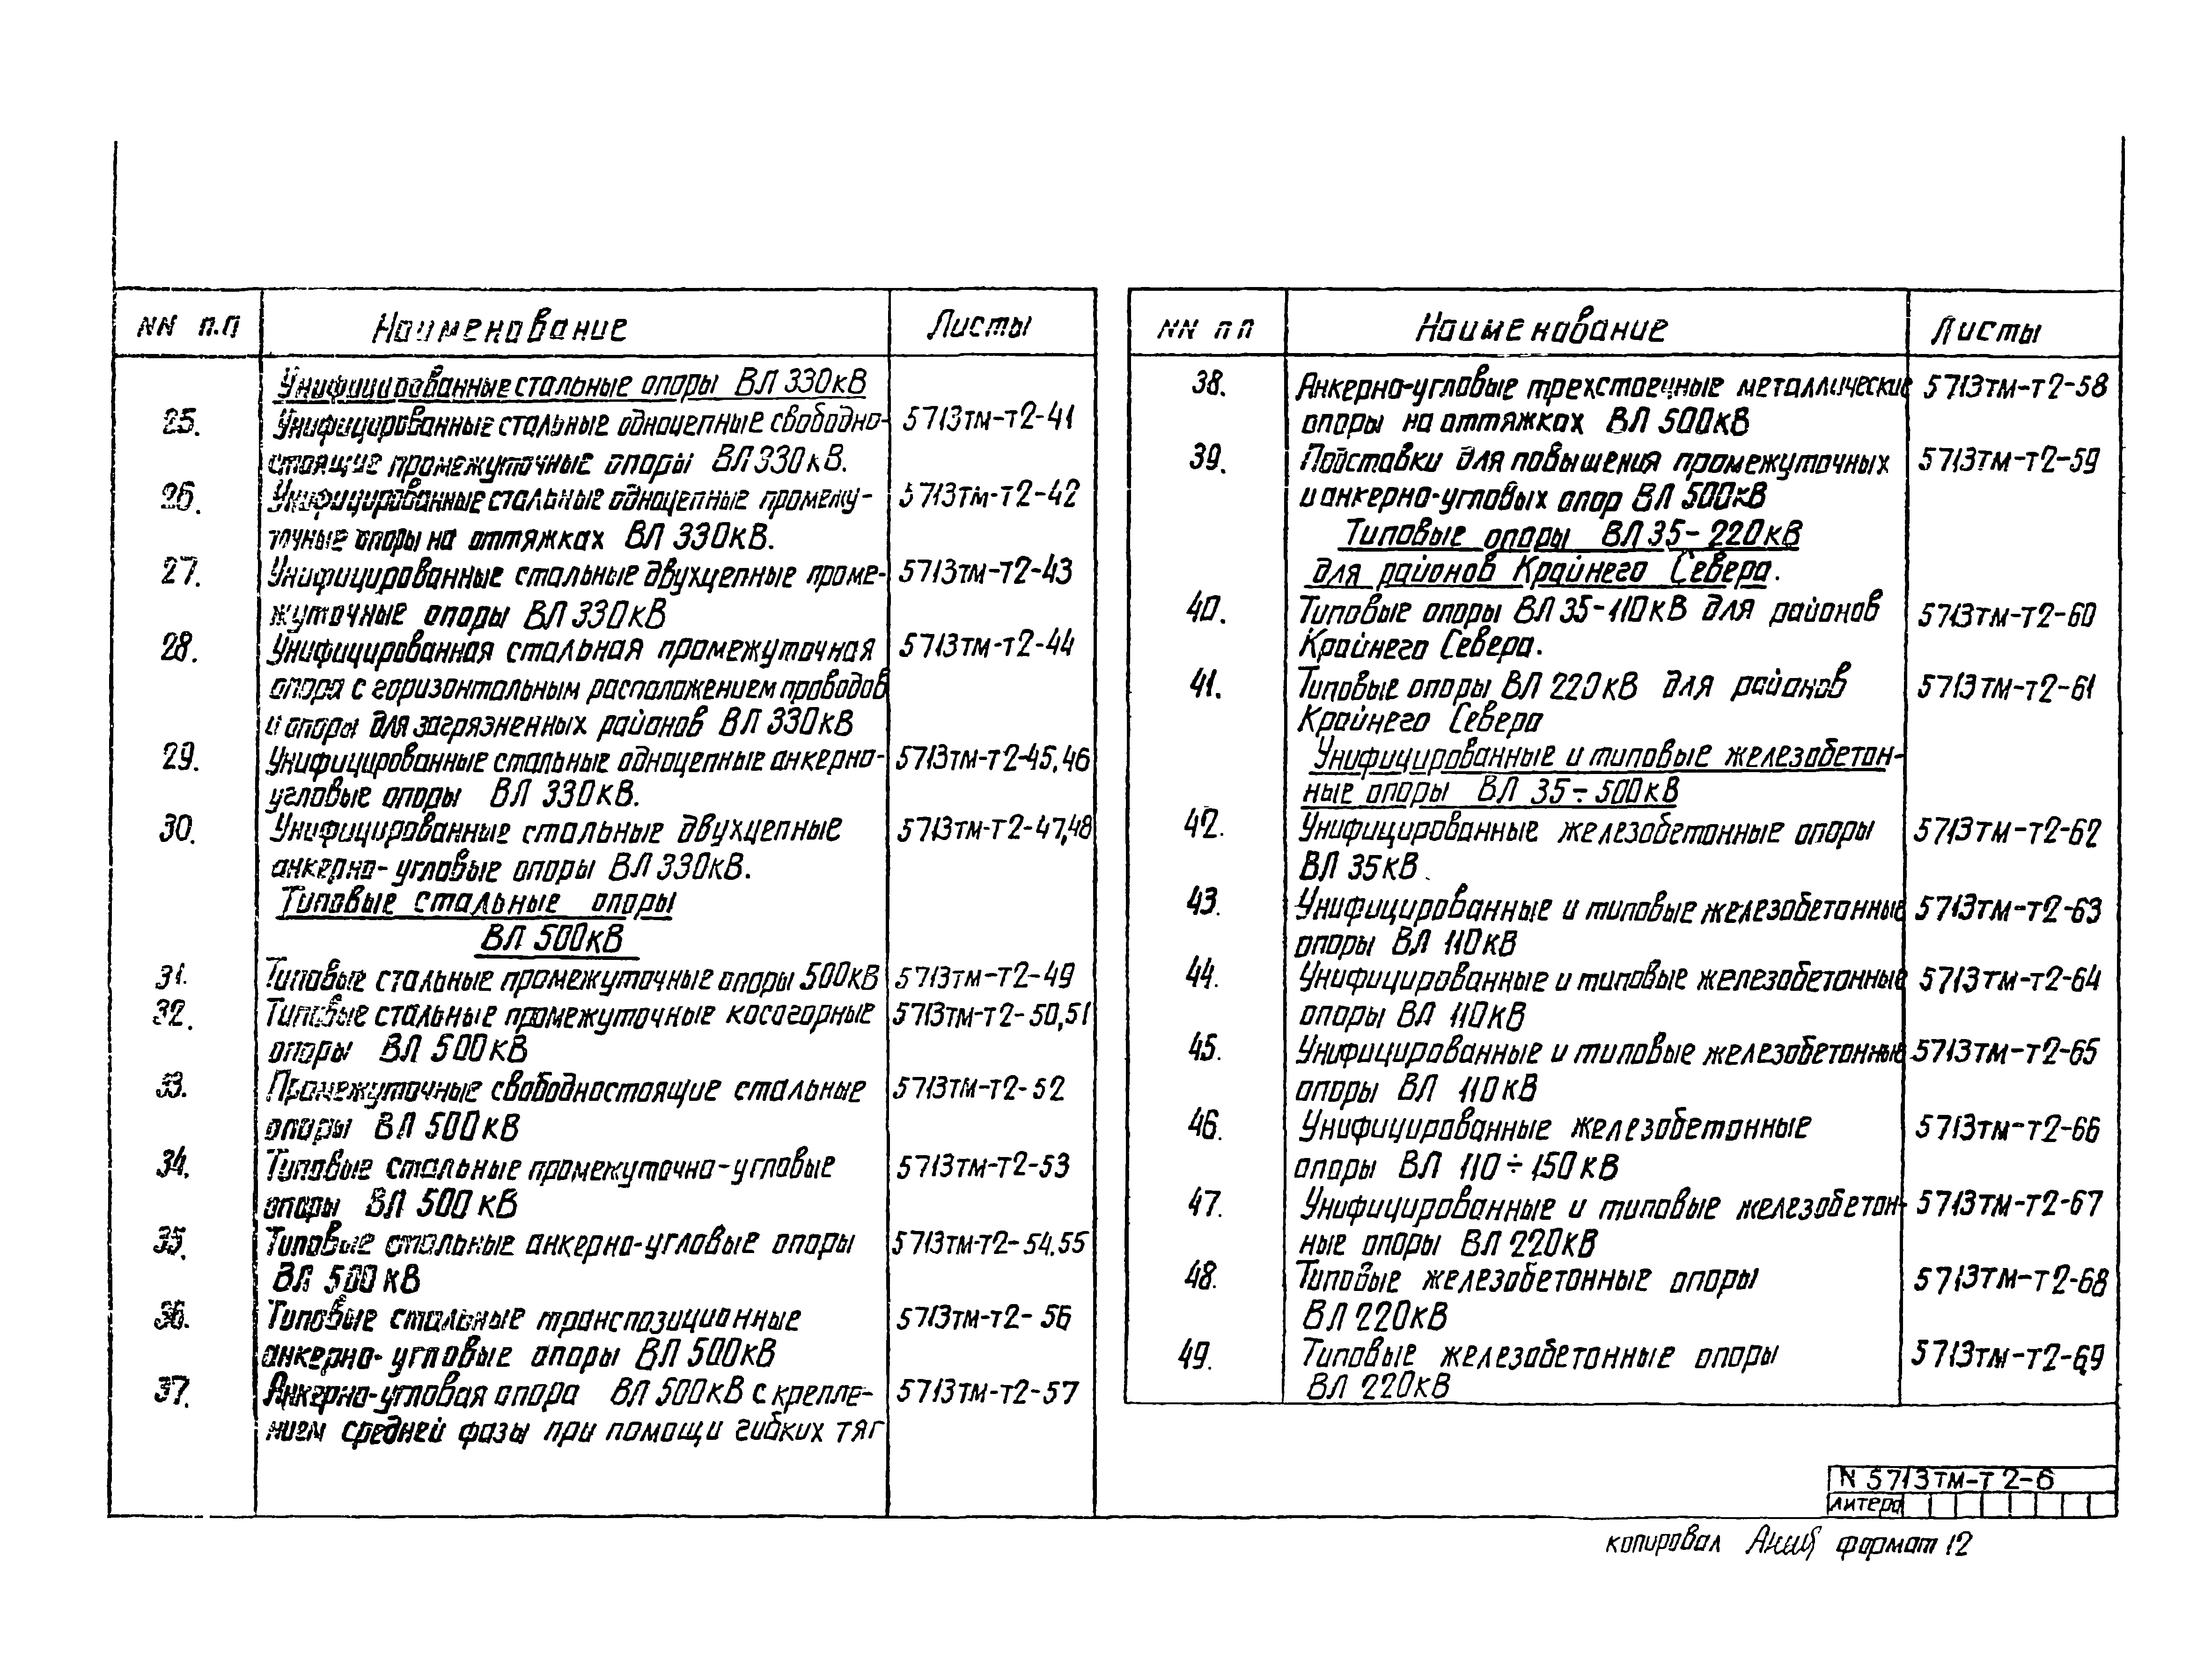 NN п.п Наименование Листы
Унифицированные стальные опоры ВЛ 330кВ
25. Унифицированные стальные одноцепные свободно- 5713тм-т2-41
стоящие промежуточные опоры ВЛ 330кВ.
26. Унифицированные стальные одноцепные промежу- 5713тм-т2-42
точные опоры на оттяжках ВЛ 330кВ.
27. Унифицированные стальные двухцепные проме- 5713тм-т2-43
жуточные опоры ВЛ 330кВ
28. Унифицированная стальная промежуточная 5713тм-т2-44
опора с горизонтальным расположением проводов
и опоры для загрязненных районов ВЛ 330кВ
29. Унифицированные стальные одноцепные анкерно- 5713тм-т2-45,46
угловые опоры ВЛ 330кВ.
30. Унифицированные стальные двухцепные 5713тм-т2-47,48
анкерно-угловые опоры ВЛ 330кВ.
Типовые стальные опоры
ВЛ 500кВ
31. Типовые стальные промежуточные опоры 500кВ 5713тм-т2-49
32. Типовые стальные промежуточные косогорные 5713тм-т2-50,51
опоры ВЛ 500кВ
33. Промежуточные свободностоящие стальные 5713тм-т2-52
опоры ВЛ 500кВ
34. Типовые стальные промежуточно-угловые 5713тм-т2-53
опоры ВЛ 500кВ
35. Типовые стальные анкерно-угловые опоры 5713тм-т2-54,55
ВЛ 500кВ
36. Типовые стальные транспозиционные 5713тм-т2-56
анкерно-угловые опоры ВЛ 500кВ
37. Анкерно-угловая опора ВЛ 500кВ с крепле- 5713тм-т2-57
нием средней фазы при помощи гибких тяг
NN п п Наименование Листы
38. Анкерно-угловые трехстоечные металлические 5713тм-т2-58
опоры на оттяжках ВЛ 500кВ
39. Подставки для повышения промежуточных 5713тм-т2-59
и анкерно-угловых опор ВЛ 500кВ
Типовые опоры ВЛ 35-220кВ
для районов Крайнего Севера.
40. Типовые опоры ВЛ 35-110кВ для районов 5713тм-т2-60
Крайнего Севера.
41. Типовые опоры ВЛ 220кВ для районов 5713тм-т2-61
Крайнего Севера
Унифицированные и типовые железобетон-
ные опоры ВЛ 35÷500кВ
42. Унифицированные железобетонные опоры 5713тм-т2-62
ВЛ 35кВ.
43. Унифицированные и типовые железобетонные 5713тм-т2-63
опоры ВЛ 110кВ
44. Унифицированные и типовые железобетонные 5713тм-т2-64
опоры ВЛ 110кВ
45. Унифицированные и типовые железобетонные 5713тм-т2-65
опоры ВЛ 110кВ
46. Унифицированные железобетонные 5713тм-т2-66
опоры ВЛ 110÷150кВ
47. Унифицированные и типовые железобетон- 5713тм-т2-67
ные опоры ВЛ 220кВ
48. Типовые железобетонные опоры 5713тм-т2-68
ВЛ 220кВ
49. Типовые железобетонные опоры 5713тм-т2-69
ВЛ 220кВ
N 5713тм-т2-6
литера
копировал формат 12